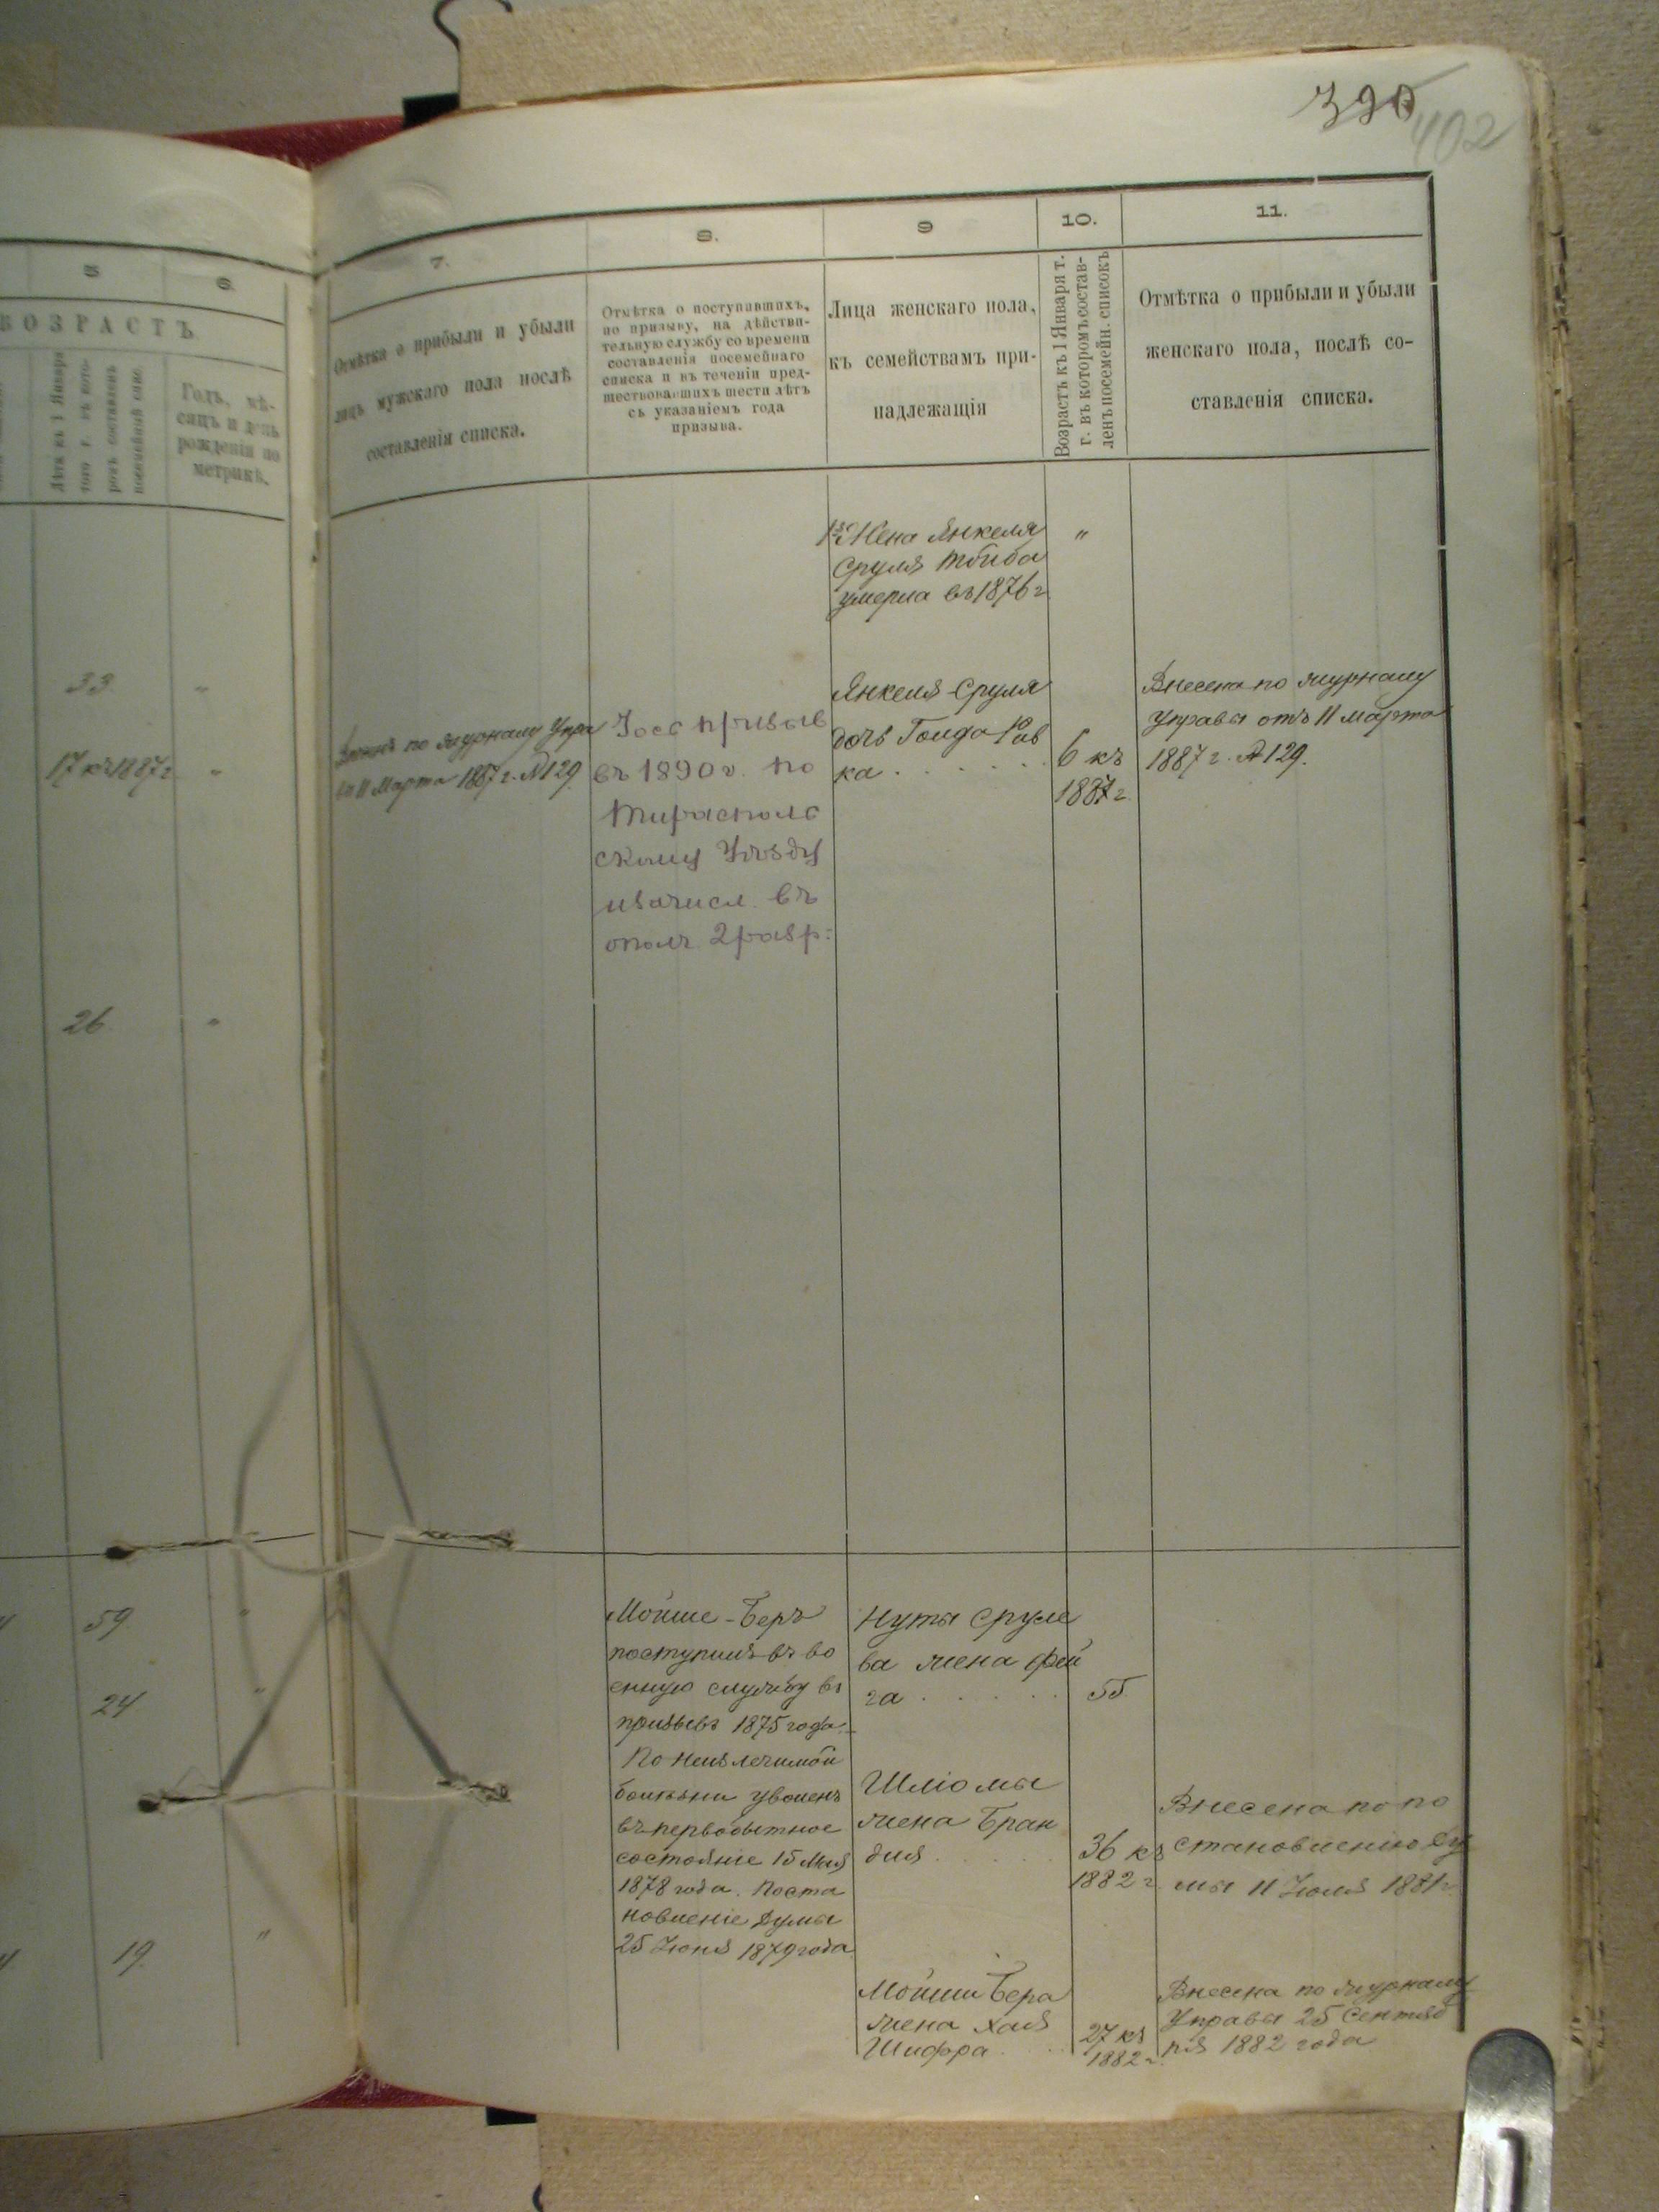 390
402
5
6.
ВОЗРАСТЪ
Лѣта къ 1 Января
того г. въ кото-
ромъ составленъ
посемейный спис.
Годъ, мѣ-
сяцъ и день
рожденія по
метрикѣ.
33
"
17 къ 1887 г
"
26
"
59.
"
24
"
19.
"
7.
8.
9
10.
11.
Отмѣтка о прибыли и убыли
лицъ мужскаго пола послѣ
составленія списка.
Отмѣтка о поступившихъ,
по призыву, на дѣйстви-
тельную службу со времени
составленія посемейнаго
списка и въ теченіи пред-
шествовавшихъ шести лѣтъ
съ указаніемъ года
призыва.
Лица женскаго пола,
къ семействамъ при-
надлежащія
Возрастъ къ 1 Января т.
г. въ которомъ состав-
ленъ посемейн. списокъ
Отмѣтка о прибыли и убыли
женскаго пола, послѣ со-
ставленія списка.
по журналу Упра
11 Марта 1887 г. №129.
призыв
въ 1890 г. по
Тирасполь
скому Уѣзду
изачисл. въ
ополч. 2 разр:
Жена Янкеля
Сруля Тойба
умерла въ 1876 г
"
Янкеля-Сруля
дочь Голда Рив
ка
6 къ
1887 г.
Внесена по журналу
Управы отъ 11 Марта
1887 г. №129.
Мойше-Беръ
поступилъ въ во
енную службу въ
призывъ 1875 года.
По неизлечимой
болѣзни уволенъ
въ первобытное
состояніе 15 Мая
1878 года. Поста
новленіе Думы
25 Іюня 1879 года
Нуты Сруле
ва жена Фей
га
55
Шліомы
жена Бран
для
36 къ
1882 г.
Внесена по по
становленію Ду
мы 11 Іюля 1881 г.
Мойши Бера
жена Хая
Шифра
27 къ
1882 г.
Внесена по журналу
Управы 25 Сентяб
ря 1882 года